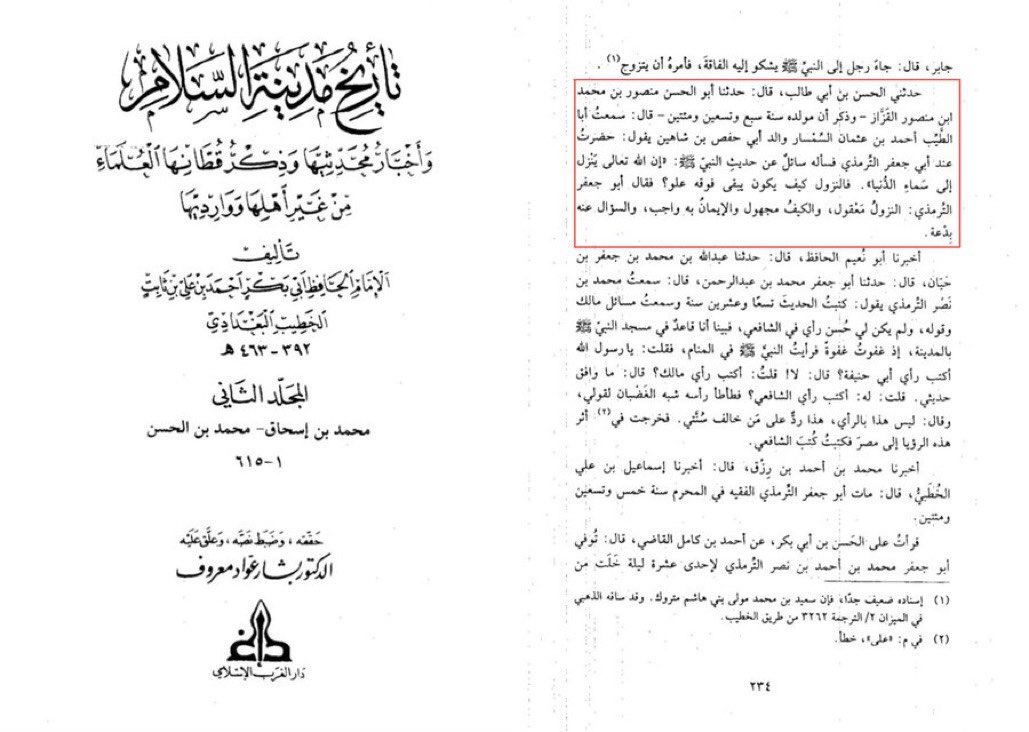 تأريخ مدينة السلام
وأخبار محدثيها وذكر قطانها العلماء
من غير أهلها ووارديها
تأليف
الإمام الحافظ أبي بكر أحمد بن علي بن ثابت
الخطيب البغدادي
٣٩٢ - ٤٦٣ هـ
المجلد الثاني
محمد بن إسحاق - محمد بن الحسن
١ - ٦١٥
حققه، وضبط نصه، وعلق عليه
الدكتور بشار عواد معروف
دار الغرب الإسلامي
جابر، قال: جاءَ رجل إلى النبيِّ ﷺ يشكو إليه الفاقةَ، فأمرهُ أن يتزوج(١).
حدثني الحسن بن أبي طالب، قال: حدثنا أبو الحسن منصور بن محمد
ابن منصور القَزَّاز - وذكر أن مولده سنة سبع وتسعين ومئتين - قال: سمعتُ أبا
الطَّيِّب أحمد بن عثمان السِّمْسار والد أبي حفص بن شاهين يقول: حضرتُ
عند أبي جعفر التِّرمذي فسأله سائلٌ عن حديثِ النبيِّ ﷺ: «إن الله تعالى يَنْزل
إلى سَماءِ الدُّنيا». فالنزول كيف يكون يبقى فوقه علو؟ فقال أبو جعفر
التِّرمذي: النزولُ مَعْقول، والكيفُ مجهول والإيمانُ به واجب، والسؤال عنه
بِدْعة.
أخبرنا أبو نُعيم الحافظ، قال: حدثنا عبدالله بن محمد بن جعفر بن
حَيَّان، قال: حدثنا أبو جعفر محمد بن عبدالرحمن، قال: سمعتُ محمد بن
نَصْر التِّرمذي يقول: كتبتُ الحديثَ تسعًا وعشرين سنة وسمعتُ مسائل مالك
وقوله، ولم يكن لي حُسن رأي في الشافعي، فبينا أنا قاعدٌ في مسجد النبيِّ ﷺ
بالمدينة، إذ غفوتُ غفوةً فرأيتُ النبيَّ ﷺ في المنام، فقلت: يا رسول الله
أكتب رأي أبي حنيفة؟ قال: لا! قلتُ: أكتب رأي مالك؟ قال: ما وافق
حديثي. قلت: له: أكتب رأي الشافعي؟ فطأطأ رأسه شبه الغَضْبان لقولي،
وقال: ليس هذا بالرأي، هذا ردٌّ على مَن خالف سُنَّتي. فخرجت في(٢) أثر
هذه الرؤيا إلى مصرَ فكتبتُ كُتبَ الشافعي.
أخبرنا محمد بن أحمد بن رِزْق، قال: أخبرنا إسماعيل بن علي
الخُطَبيُّ، قال: مات أبو جعفر التِّرمذي الفقيه في المحرم سنة خمس وتسعين
ومئتين.
قرأتُ على الحَسن بن أبي بكر، عن أحمد بن كامل القاضي، قال: تُوفي
أبو جعفر محمد بن أحمد بن نصر التِّرمذي لإحدى عشرة ليلة خَلَت من
(١) إسناده ضعيف جدًا، فإن سعيد بن محمد مولى بني هاشم متروك. وقد ساقه الذهبي
في الميزان ٢/ الترجمة ٣٢٦٢ من طريق الخطيب.
(٢) في م: «على»، خطأ.
٢٣٤